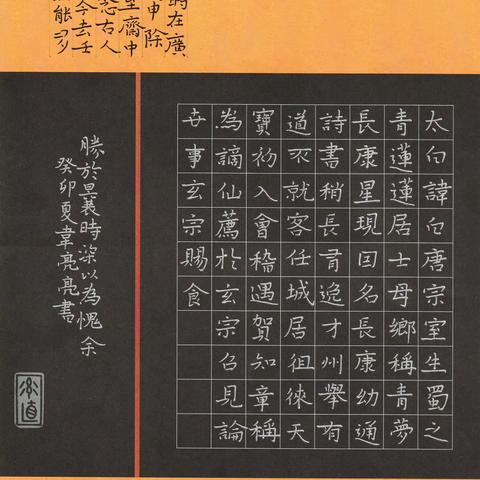 在廣
申除
齋中
恐古人
今去壬
能
太白諱白唐宗室生蜀之
青蓮蓮居士母鄉稱青夢
長康星現曰名長康幼通
詩書稍長有逸才州舉有
道不就客任城居徂徠天
寶初入會稽遇賀知章稱
為謫仙薦於玄宗召見論
世事玄宗賜食
勝於曩時深以為愧余
癸卯夏韋亮亮書